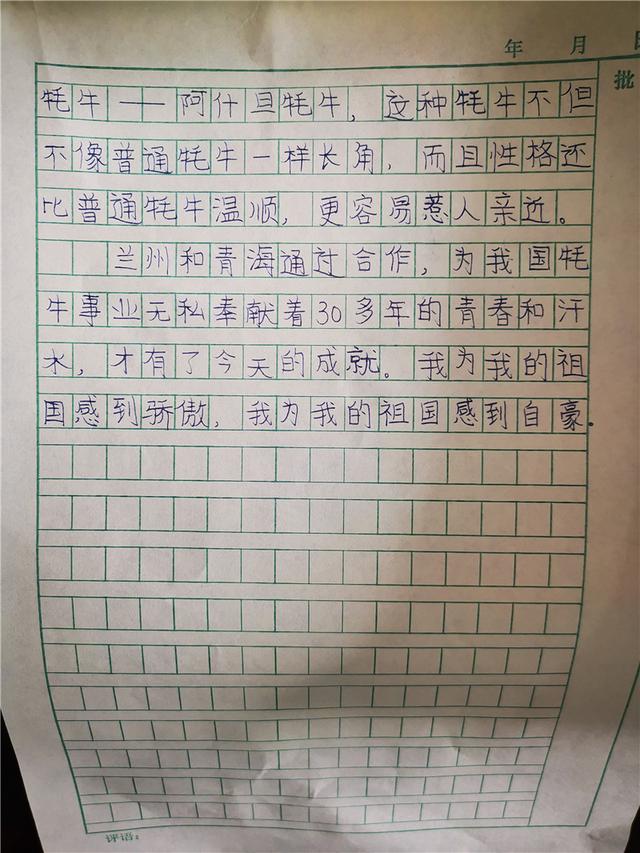 年 月 日
批
牦牛——阿什旦牦牛，这种牦牛不但
不像普通牦牛一样长角，而且性格还
比普通牦牛温顺，更容易惹人亲近。
兰州和青海通过合作，为我国牦
牛事业无私奉献着30多年的青春和汗
水，才有了今天的成就。我为我的祖
国感到骄傲，我为我的祖国感到自豪.
评语：